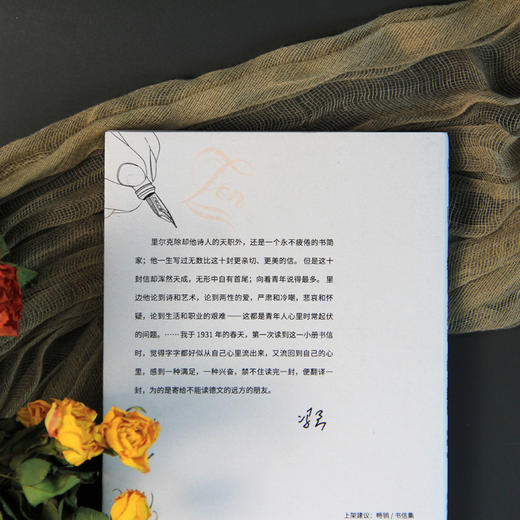 Ten
里尔克除却他诗人的天职外，还是一个永不疲倦的书简
家；他一生写过无数比这十封更亲切、更美的信。但是这十
封信却浑然天成，无形中自有首尾；向着青年说得最多。里
边他论到诗和艺术，论到两性的爱，严肃和冷嘲，悲哀和怀
疑，论到生活和职业的艰难——这都是青年人心里时常起伏
的问题。……我于1931年的春天，第一次读到这一小册书信
时，觉得字字都好似从自己心里流出来，又流回到自己的心
里，感到一种满足，一种兴奋，禁不住读完一封，便翻译一
封，为的是寄给不能读德文的远方的朋友。
冯至
上架建议：畅销/书信集